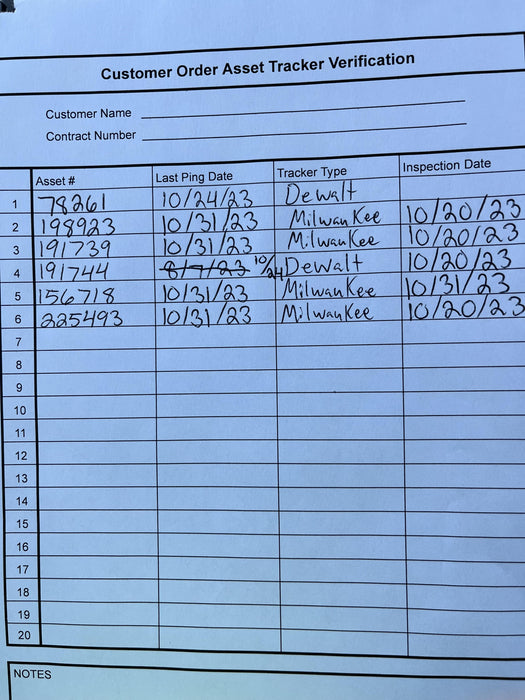 Customer Order Asset Tracker Verification
Customer Name
Contract Number
Asset # Last Ping Date Tracker Type Inspection Date
1 78261 10/24/23 Dewalt
2 198923 10/31/23 Milwaukee 10/20/23
3 191739 10/31/23 Milwaukee 10/20/23
4 191744 8/7/23 10/24 Dewalt 10/20/23
5 156718 10/31/23 Milwaukee 10/31/23
6 225493 10/31/23 Milwaukee 10/20/23
7
8
9
10
11
12
13
14
15
16
17
18
19
20
NOTES